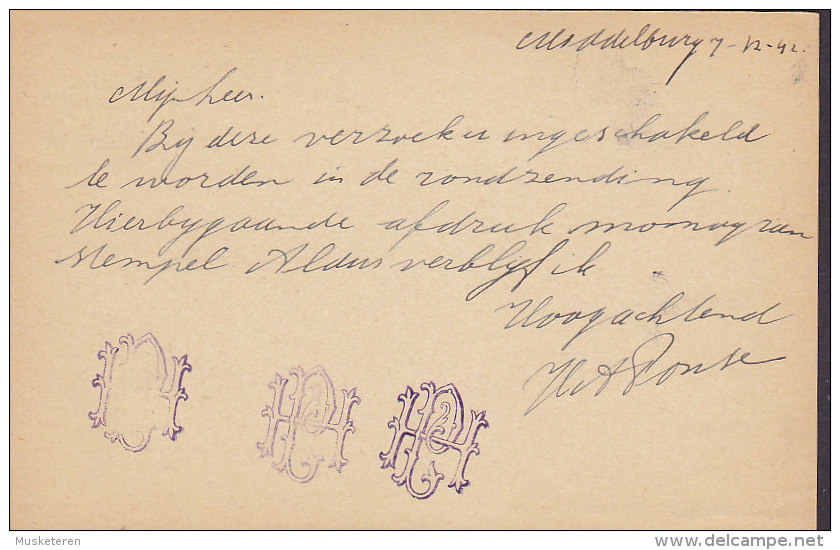 Middelburg 7-12-42.
Mijnheer.
Bij deze verzoek u ingeschakeld
te worden in de rondzending.
Hierbygaande afdruk monogram
stempel. Aldus verblijf ik
Hoogachtend
Musketeren
delcampe.net